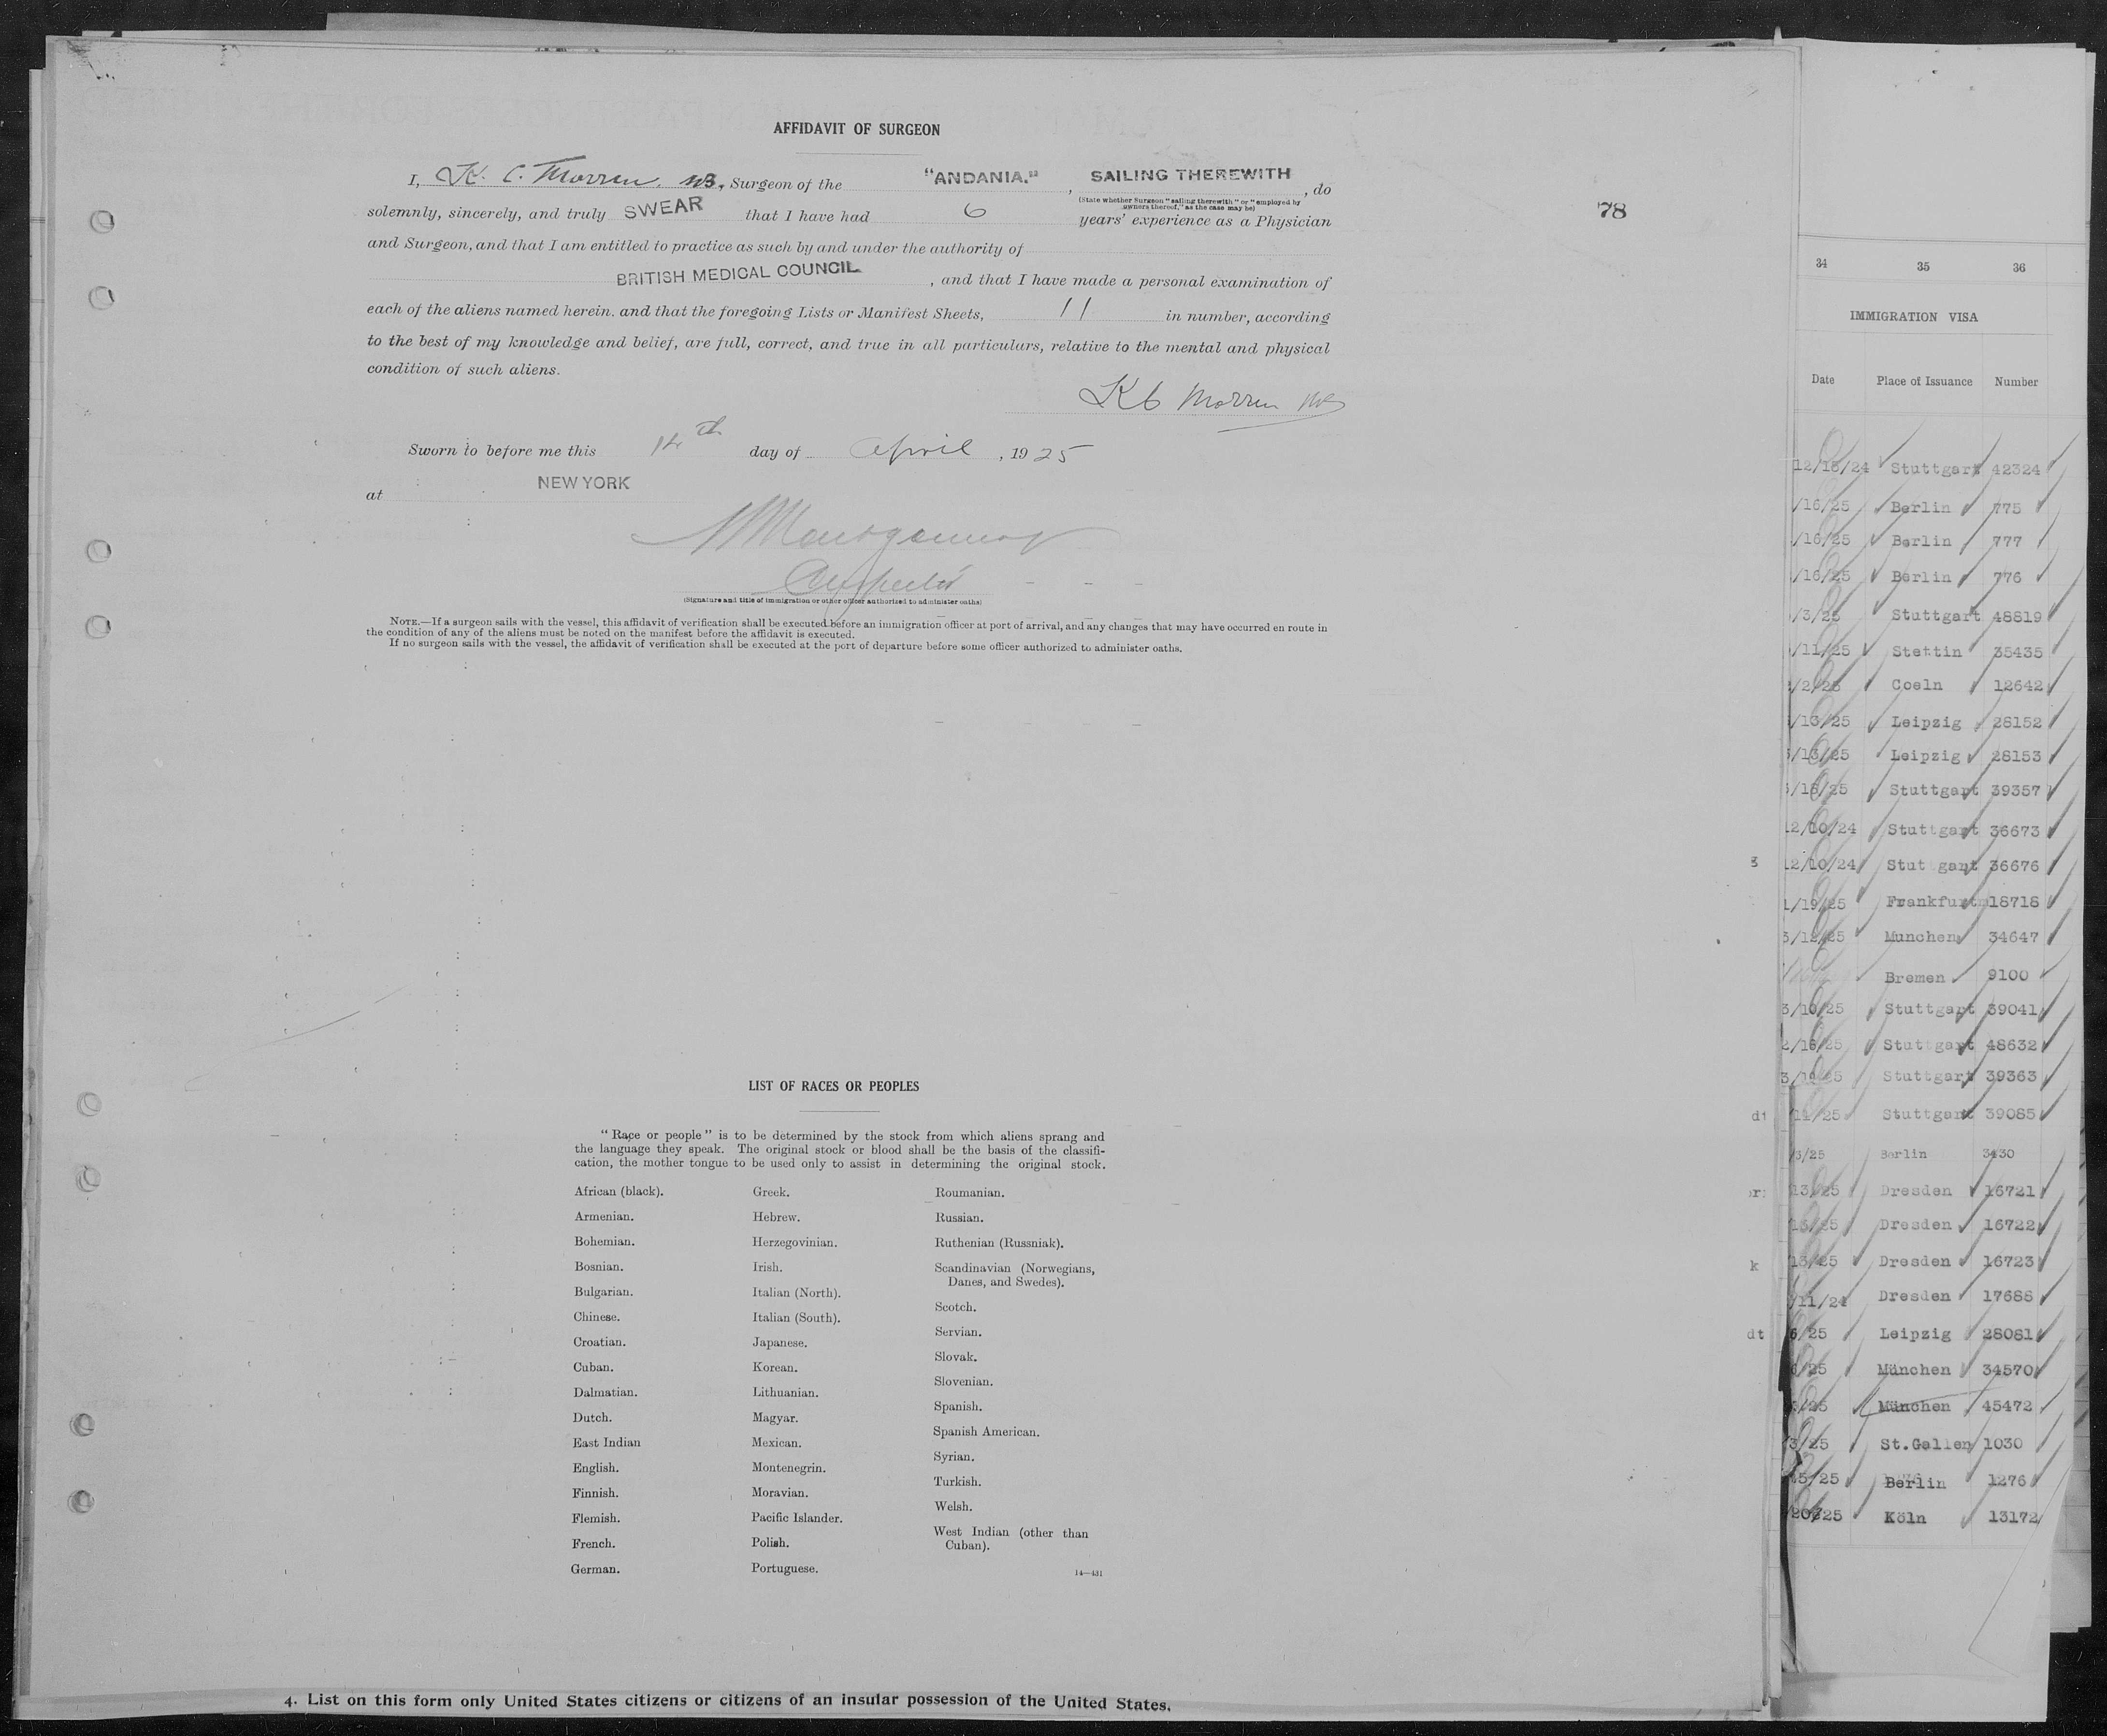 AFFIDAVIT OF SURGEON
I, K. C. Morren, MB, Surgeon of the "ANDANIA." , SAILING THEREWITH , do
(State whether Surgeon "sailing therewith" or "employed by
owners thereof," as the case may be)
solemnly, sincerely, and truly SWEAR that I have had 6 years' experience as a Physician
and Surgeon, and that I am entitled to practice as such by and under the authority of
BRITISH MEDICAL COUNCIL , and that I have made a personal examination of
each of the aliens named herein. and that the foregoing Lists or Manifest Sheets, 11 in number, according
to the best of my knowledge and belief, are full, correct, and true in all particulars, relative to the mental and physical
condition of such aliens.
K C Morren MB
Sworn to before me this 14th day of April , 1925
at NEW YORK
Inspector
(Signature and title of immigration or other officer authorized to administer oaths)
NOTE.—If a surgeon sails with the vessel, this affidavit of verification shall be executed before an immigration officer at port of arrival, and any changes that may have occurred en route in
the condition of any of the aliens must be noted on the manifest before the affidavit is executed.
If no surgeon sails with the vessel, the affidavit of verification shall be executed at the port of departure before some officer authorized to administer oaths.
78
LIST OF RACES OR PEOPLES
"Race or people" is to be determined by the stock from which aliens sprang and
the language they speak. The original stock or blood shall be the basis of the classifi-
cation, the mother tongue to be used only to assist in determining the original stock.
African (black).
Armenian.
Bohemian.
Bosnian.
Bulgarian.
Chinese.
Croatian.
Cuban.
Dalmatian.
Dutch.
East Indian
English.
Finnish.
Flemish.
French.
German.
Greek.
Hebrew.
Herzegovinian.
Irish.
Italian (North).
Italian (South).
Japanese.
Korean.
Lithuanian.
Magyar.
Mexican.
Montenegrin.
Moravian.
Pacific Islander.
Polish.
Portuguese.
Roumanian.
Russian.
Ruthenian (Russniak).
Scandinavian (Norwegians,
Danes, and Swedes).
Scotch.
Servian.
Slovak.
Slovenian.
Spanish.
Spanish American.
Syrian.
Turkish.
Welsh.
West Indian (other than
Cuban).
14—431
4. List on this form only United States citizens or citizens of an insular possession of the United States.
34 35 36
IMMIGRATION VISA
Date Place of Issuance Number
12/16/24 Stuttgart 42324
/16/25 Berlin 775
/16/25 Berlin 777
/16/25 Berlin 776
/3/25 Stuttgart 48819
/11/25 Stettin 35435
/2/25 Coeln 12642
/13/25 Leipzig 28152
/13/25 Leipzig 28153
/18/25 Stuttgart 39357
12/10/24 Stuttgart 36673
3 12/10/24 Stut gart 36676
1/19/25 Frankfurt 18718
3/12/25 Munchen 34647
Bremen 9100
3/10/25 Stuttgart 39041
2/16/25 Stuttgart 48632
3/18/25 Stuttgart 39363
dt /11/25 Stuttgart 39085
/3/25 Berlin 3430
13/25 Dresden 16721
13/25 Dresden 16722
k 13/25 Dresden 16723
/11/24 Dresden 17686
dt 6/25 Leipzig 28081
/25 München 34570
/25 München 45472
3/25 St.Gallen 1030
5/25 Berlin 1276
/20/25 Köln 13172